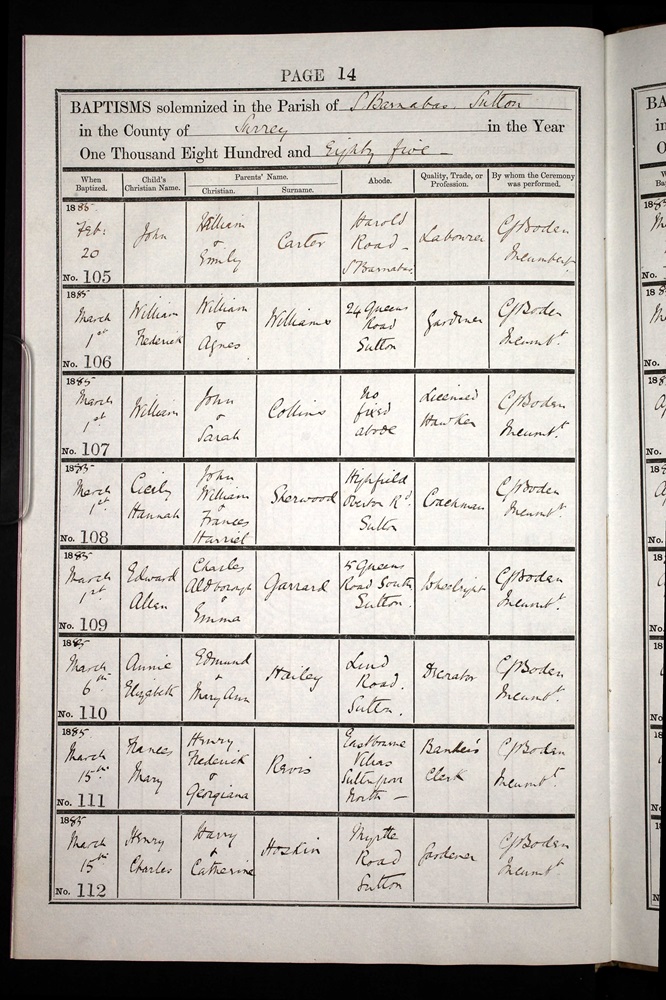 PAGE 14
BAPTISMS solemnized in the Parish of S Barnabas. Sutton
in the County of Surrey in the Year
One Thousand Eight Hundred and Eighty five
When Baptized. Child's Christian Name. Parents' Name. Christian. Surname. Abode. Quality, Trade, or Profession. By whom the Ceremony was performed.
1885. Feb: 20 No. 105 John William & Emily Carter Harold Road S Barnabas Labourer CJBoden Incumbent.
1885 March 1st No. 106 William Frederick William & Agnes Williams 24 Queens Road Sutton Gardener CJBoden Incumbt
1885 March 1st No. 107 William John & Sarah Collins No fixed abode Licensed Hawker CJBoden Incumbt.
1885 March 1st No. 108 Cecily Hannah John William & Frances Harriet Sherwood Highfield Rd. Sutton Coachman CJBoden Incumbt.
1885 March 1st No. 109 Edward Allen Charles Aldborough & Emma Garrard 5 Queens Road South Sutton. Wheelwright CJBoden Incumbt.
1885 March 6th No. 110 Annie Elizabeth Edmund & Mary Ann Hailey Lind Road. Sutton. Decorator CJBoden Incumbt.
1885 March 15th No. 111 Frances Mary Henry Frederick & Georgiana Revis Eastbourne Villas North Banker's Clerk CJBoden Incumbt.
1885 March 15th No. 112 Henry Charles Harry & Catherine Hoskin Myrtle Road Sutton Gardener CJBoden Incumbt.